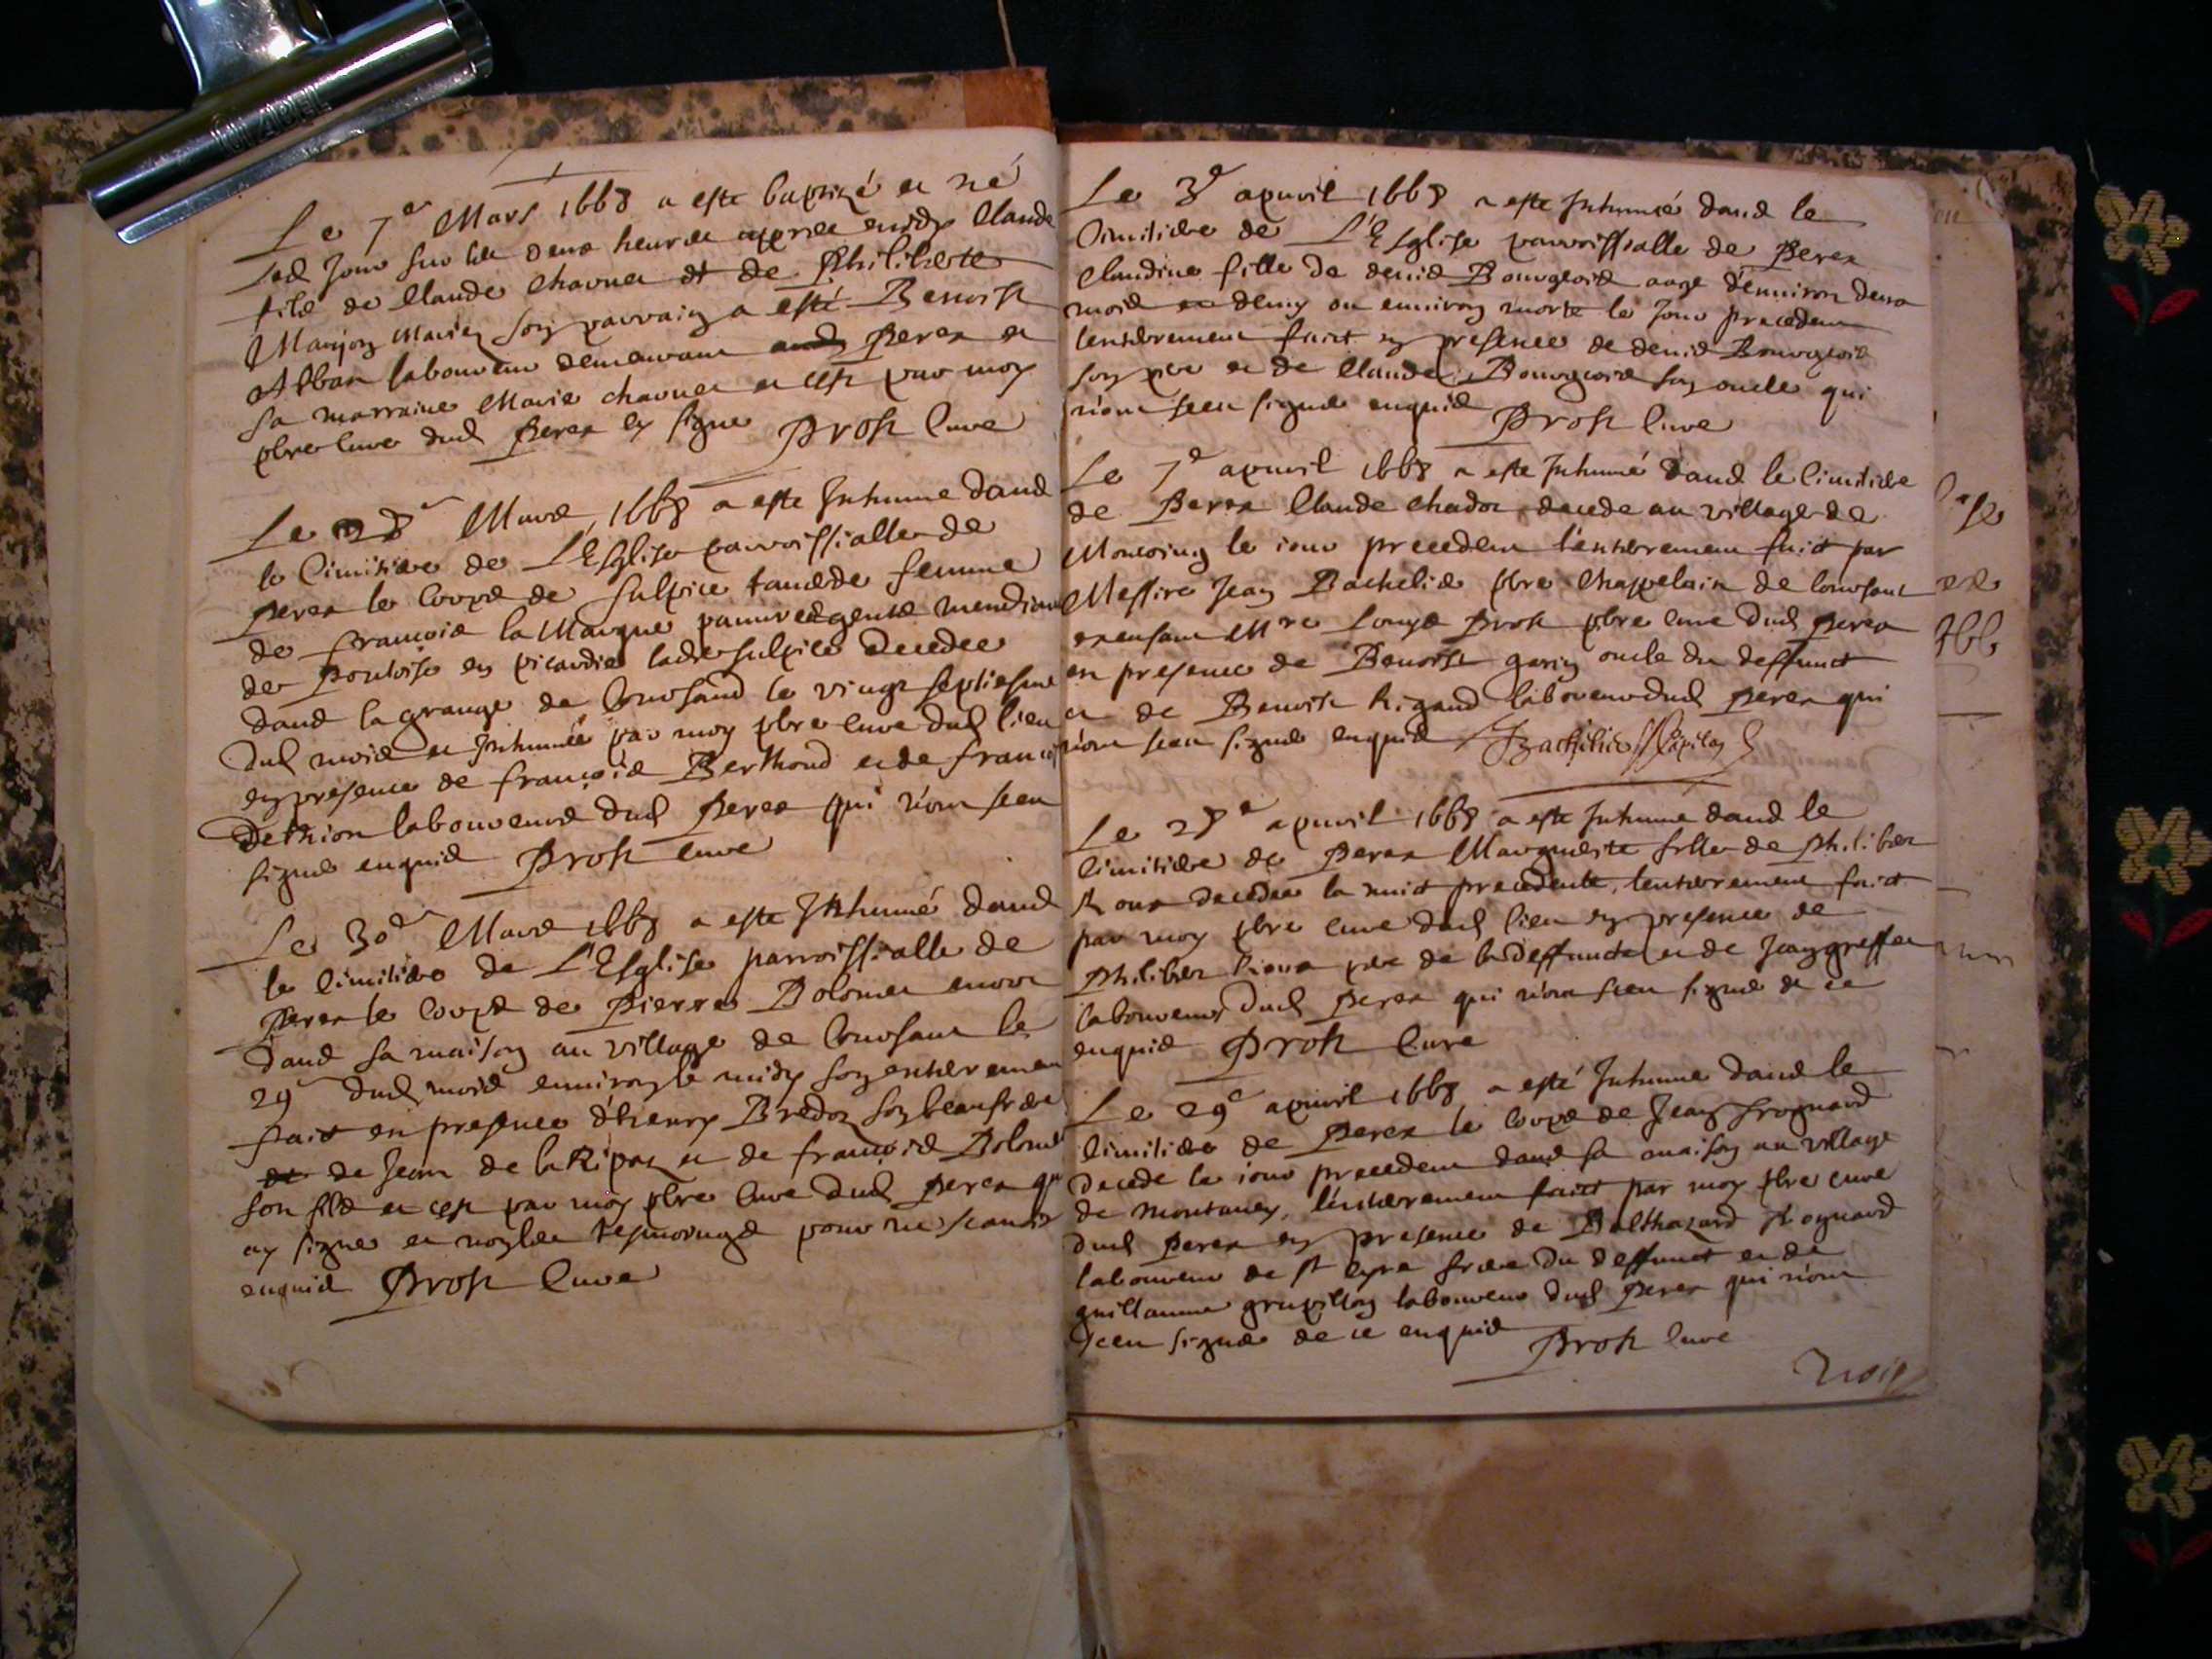 Le 7e Mars 1668 a este baptizé et né
led jour sur les deux heures apres midy Claude
filz de Claude Chavnet et de Philiberte
Manjon Mariez son parrain a esté Benoist
Alban laboureur demeurant Perex et
sa marraine Marie Chavnet et cest par moy
pbre Cure dud Perex ay signe Prost Cure
Le 28e Mars 1668 a este Inhume dans
le Cimitiere de L'Esglise parroissialle de
Perex le Corps de Sulpice femme
de François la Marque pauvres gents mendians
de Pontoise en picardie lade Sulpice decedee
dans la grange de Corsand le vingt septiesme
dud mois et Inhumée par moy pbre Cure dud lieu
en presence de françois Berthoud et de françois
Dethion laboureurs dud Perex qui n'ont sceu
signer enquis Prost Cure
Le 30e Mars 1668 a este Inhumé dans
le Cimitiere de L'Esglise parroissialle de
Perex le Corps de Pierre Bolomet mort
dans sa maison au village de Corsant le
29e dud mois environ le midy son enterrement
fait en presence d'henry Bredon son beaufrere
de Jean de la Ripaz et de françois Bolomet
son filz et cest par moy pbre Cure dud Perex qui
ay signe et non les tesmoings pour ne scavoir
enquis Prost Cure
Le 3e apuril 1668 a este Inhumée dans le
Cimitiere de L'Esglise parroissialle de Perex
Claudine fille de denis Bourgeois aage d'environ deux
mois et demy ou environ morte le jour precedent
lenterrement faict en presence de denis Bourgeois
son pere et de Claude Bourgeois son oncle qui
n'ont sceu signer enquis Prost Cure
Le 7e apuril 1668 a este Inhumé dans le Cimitiere
de Perex Claude Chadoz decede au village de
le jour precedent l'enterrement faict par
Messire Jean Bachelie pbre Chappelain de Corsant
en presence de Benoist garin oncle du deffunct
et de Benoist Rigaud laboureur dud Perex qui
n'ont sceu signer enquis
Le 28e apuril 1668 a este Inhume dans le
Cimitiere de Perex Marguerite fille de Philibert
decedee la nuict precedente, lenterrement faict
par moy pbre Cure dud lieu en presence de
Philibert pere de la deffuncte et de Jean greffet
laboureurs dud Perex qui n'ont sceu signer de ce
enquis Prost Cure
Le 29e apuril 1668 a esté Inhume dans le
Cimitiere de Perex le Corps de Jean frognard
decede le jour precedent dans sa maison au village
de Montaney, l'enterrement faict par moy pbre Cure
dud Perex en presence de Balthazard frognard
laboureur de St Cyre frere du deffunct et de
guillaume grapillon laboureur dud Perex qui n'ont
sceu signer de ce enquis Prost Cure